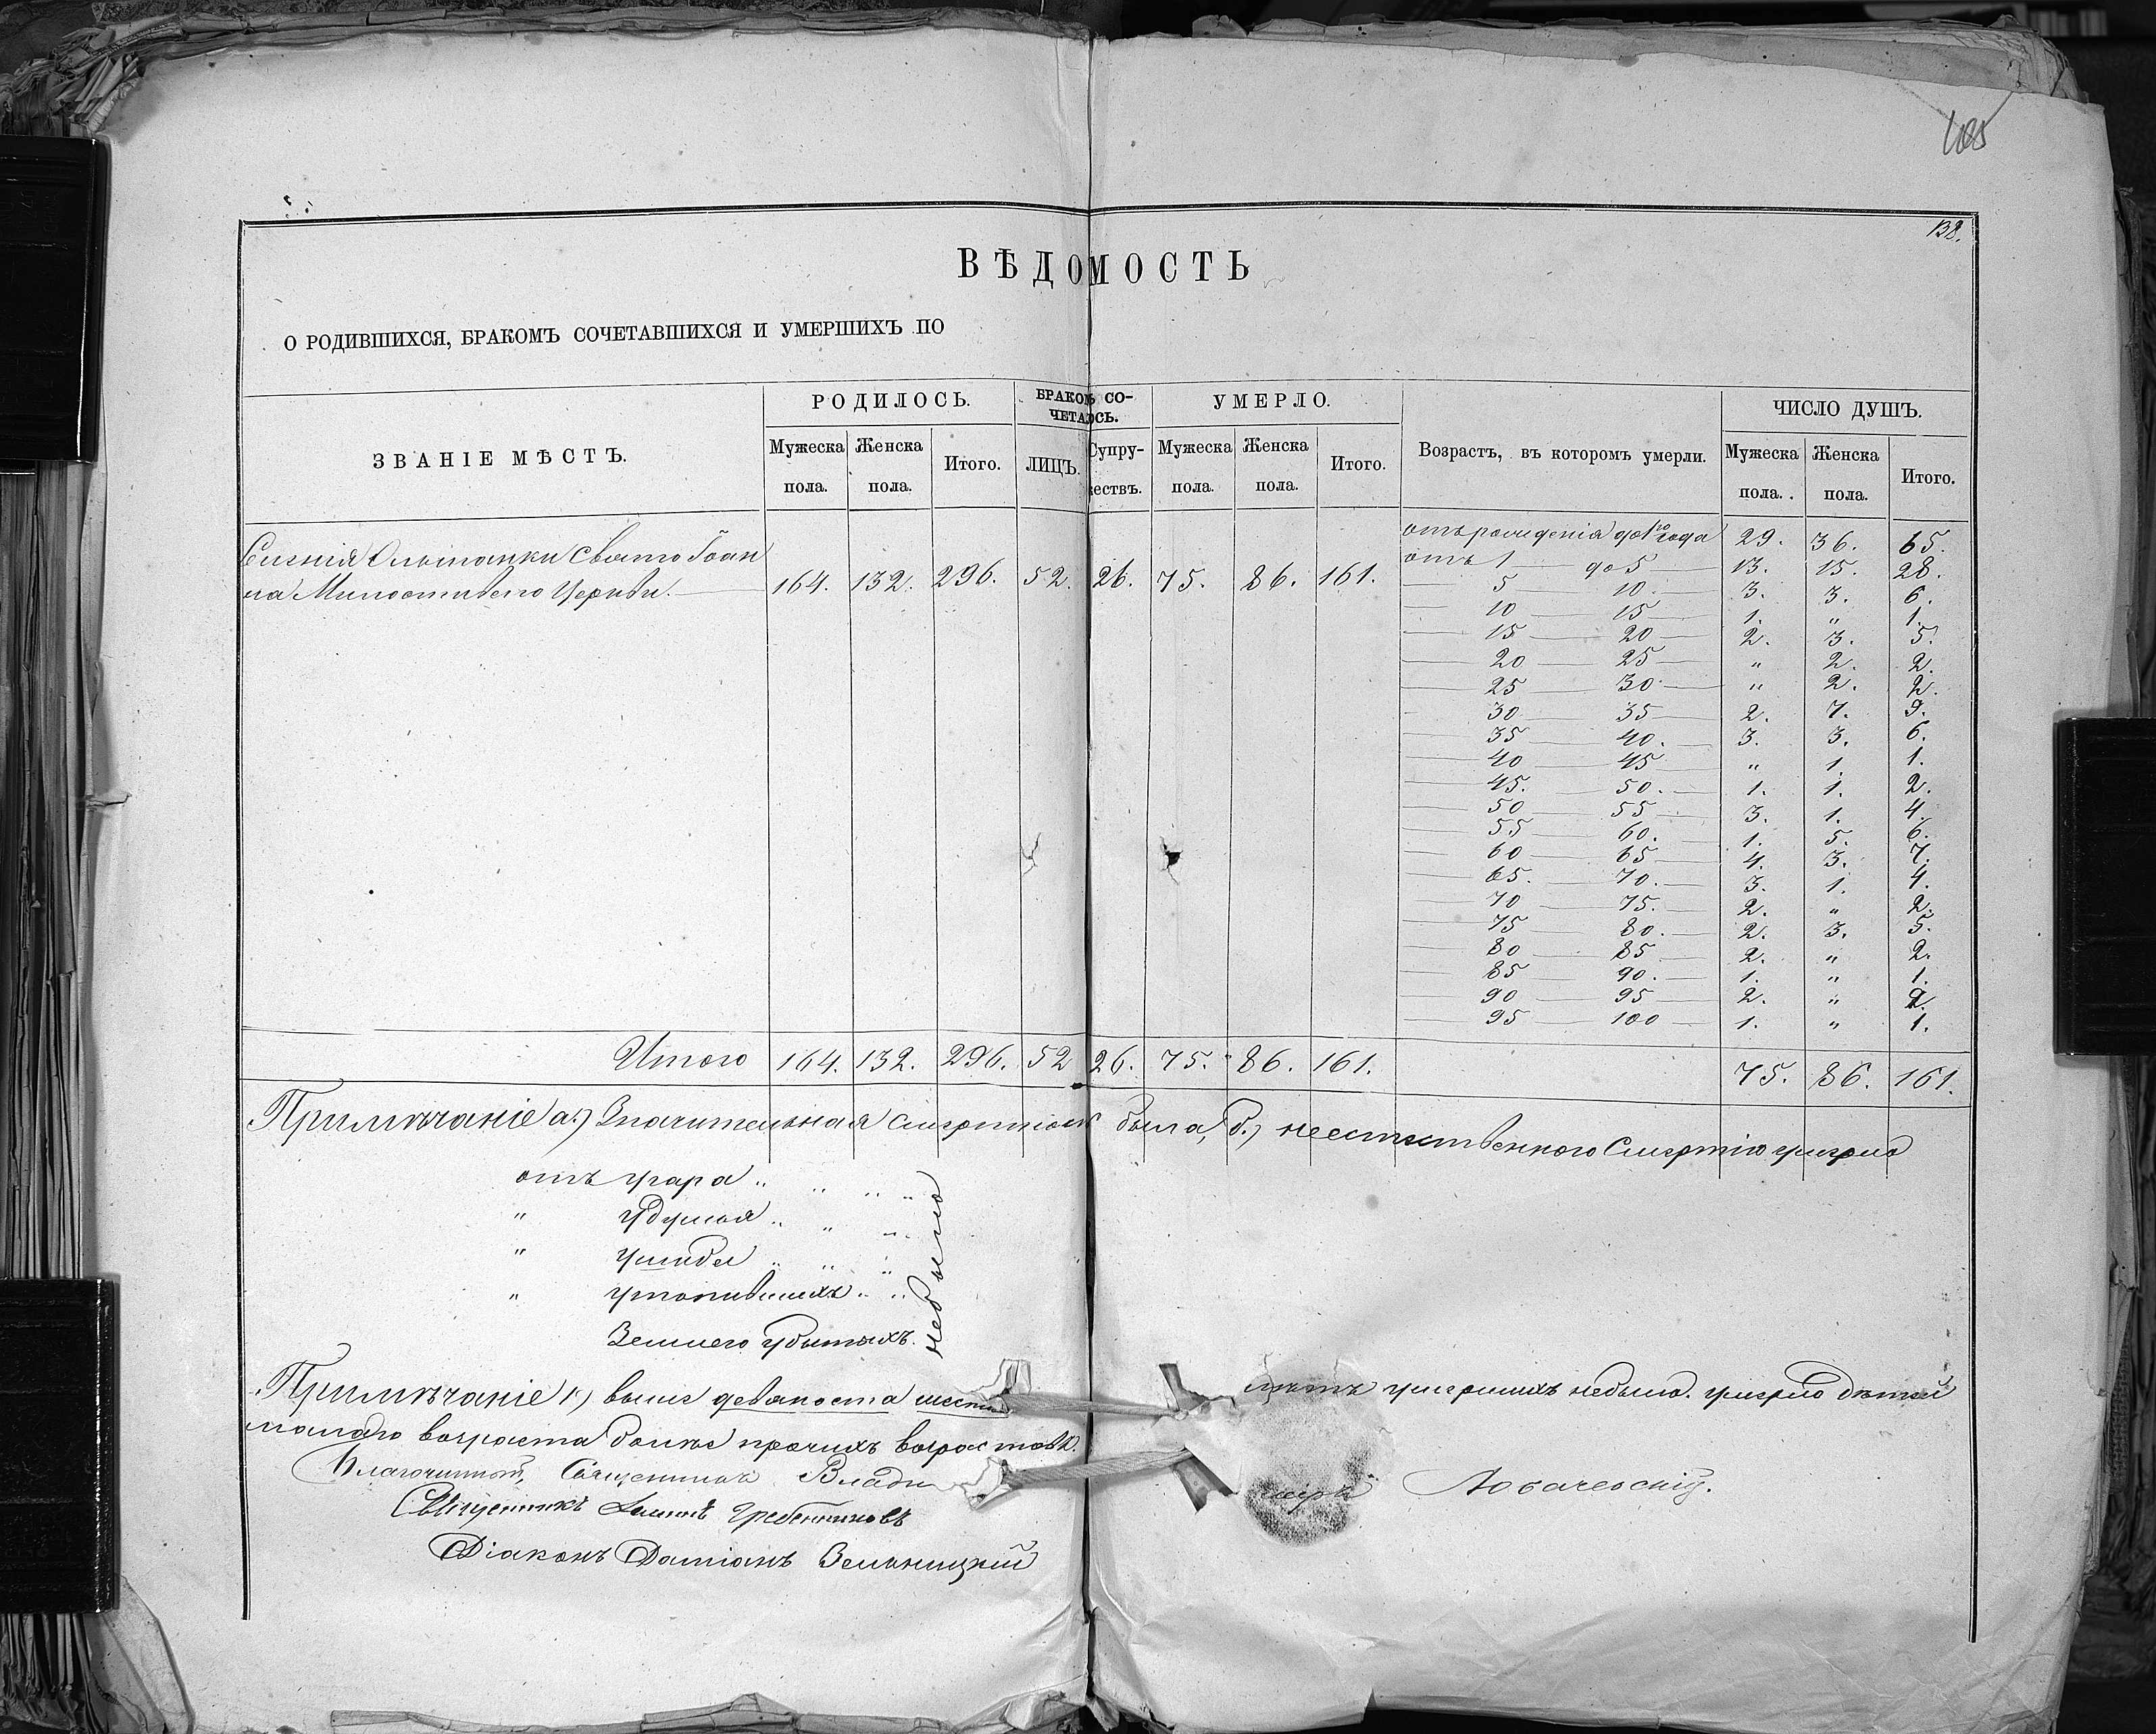 138.
ВѢДОМОСТЬ
О РОДИВШИХСЯ, БРАКОМЪ СОЧЕТАВШИХСЯ И УМЕРШИХЪ ПО
ЗВАНІЕ МѢСТЪ. РОДИЛОСЬ. БРАКОМ СО-ЧЕТАЛОСЬ. УМЕРЛО. Возрастъ, въ которомъ умерли. ЧИСЛО ДУШЪ.
Мужеска пола. Женска пола. Итого. ЛИЦЪ. Супру-жествъ. Мужеска пола. Женска пола. Итого. Мужеска пола. Женска пола. Итого.
Селенія Ольшанки Свято Іоан
на Милостиваго Церкви. 164. 132. 296. 52. 26. 75. 86. 161.
отъ рожденія до 1го года 29. 36. 65.
отъ 1 до 5 13. 15. 28.
5 10. 3. 3. 6.
10 15 1. " 1.
15 20 2. 3. 5.
20 25 " 2. 2.
25 30 " 2. 2.
30 35 2. 7. 9.
35 40. 3. 3. 6.
40 45 " 1. 1.
45. 50. 1. 1. 2.
50 55 3. 1. 4.
55 60. 1. 5. 6.
60 65 4. 3. 7.
65. 70. 3. 1. 4.
70 75. 2. " 2.
75 80. 2. 3. 5.
80 85 2. " 2.
85 90. 1. " 1.
90 95 2. " 2.
95 100 1. " 1.
Итого 164. 132. 296. 52 26. 75. 86. 161. 75. 86. 161.
Примѣчаніе а.) Значительная смертность была, б.) неестественного Смертію умерло
отъ угара " " " "
" удушья " " "
" ушибы " " "
" утопившихъ " "
Землею убитыхъ.
небыло
Примѣчаніе 1) выше девяноста шести лѣтъ умершихъ небыло. умерло дѣтей
малаго возраста болѣе прочихъ возрастовъ.
Благочинный, Священникъ Влади міръ Лобачевскій.
Священникъ Гребенниковъ
Діаконъ Даміанъ Зельницкій